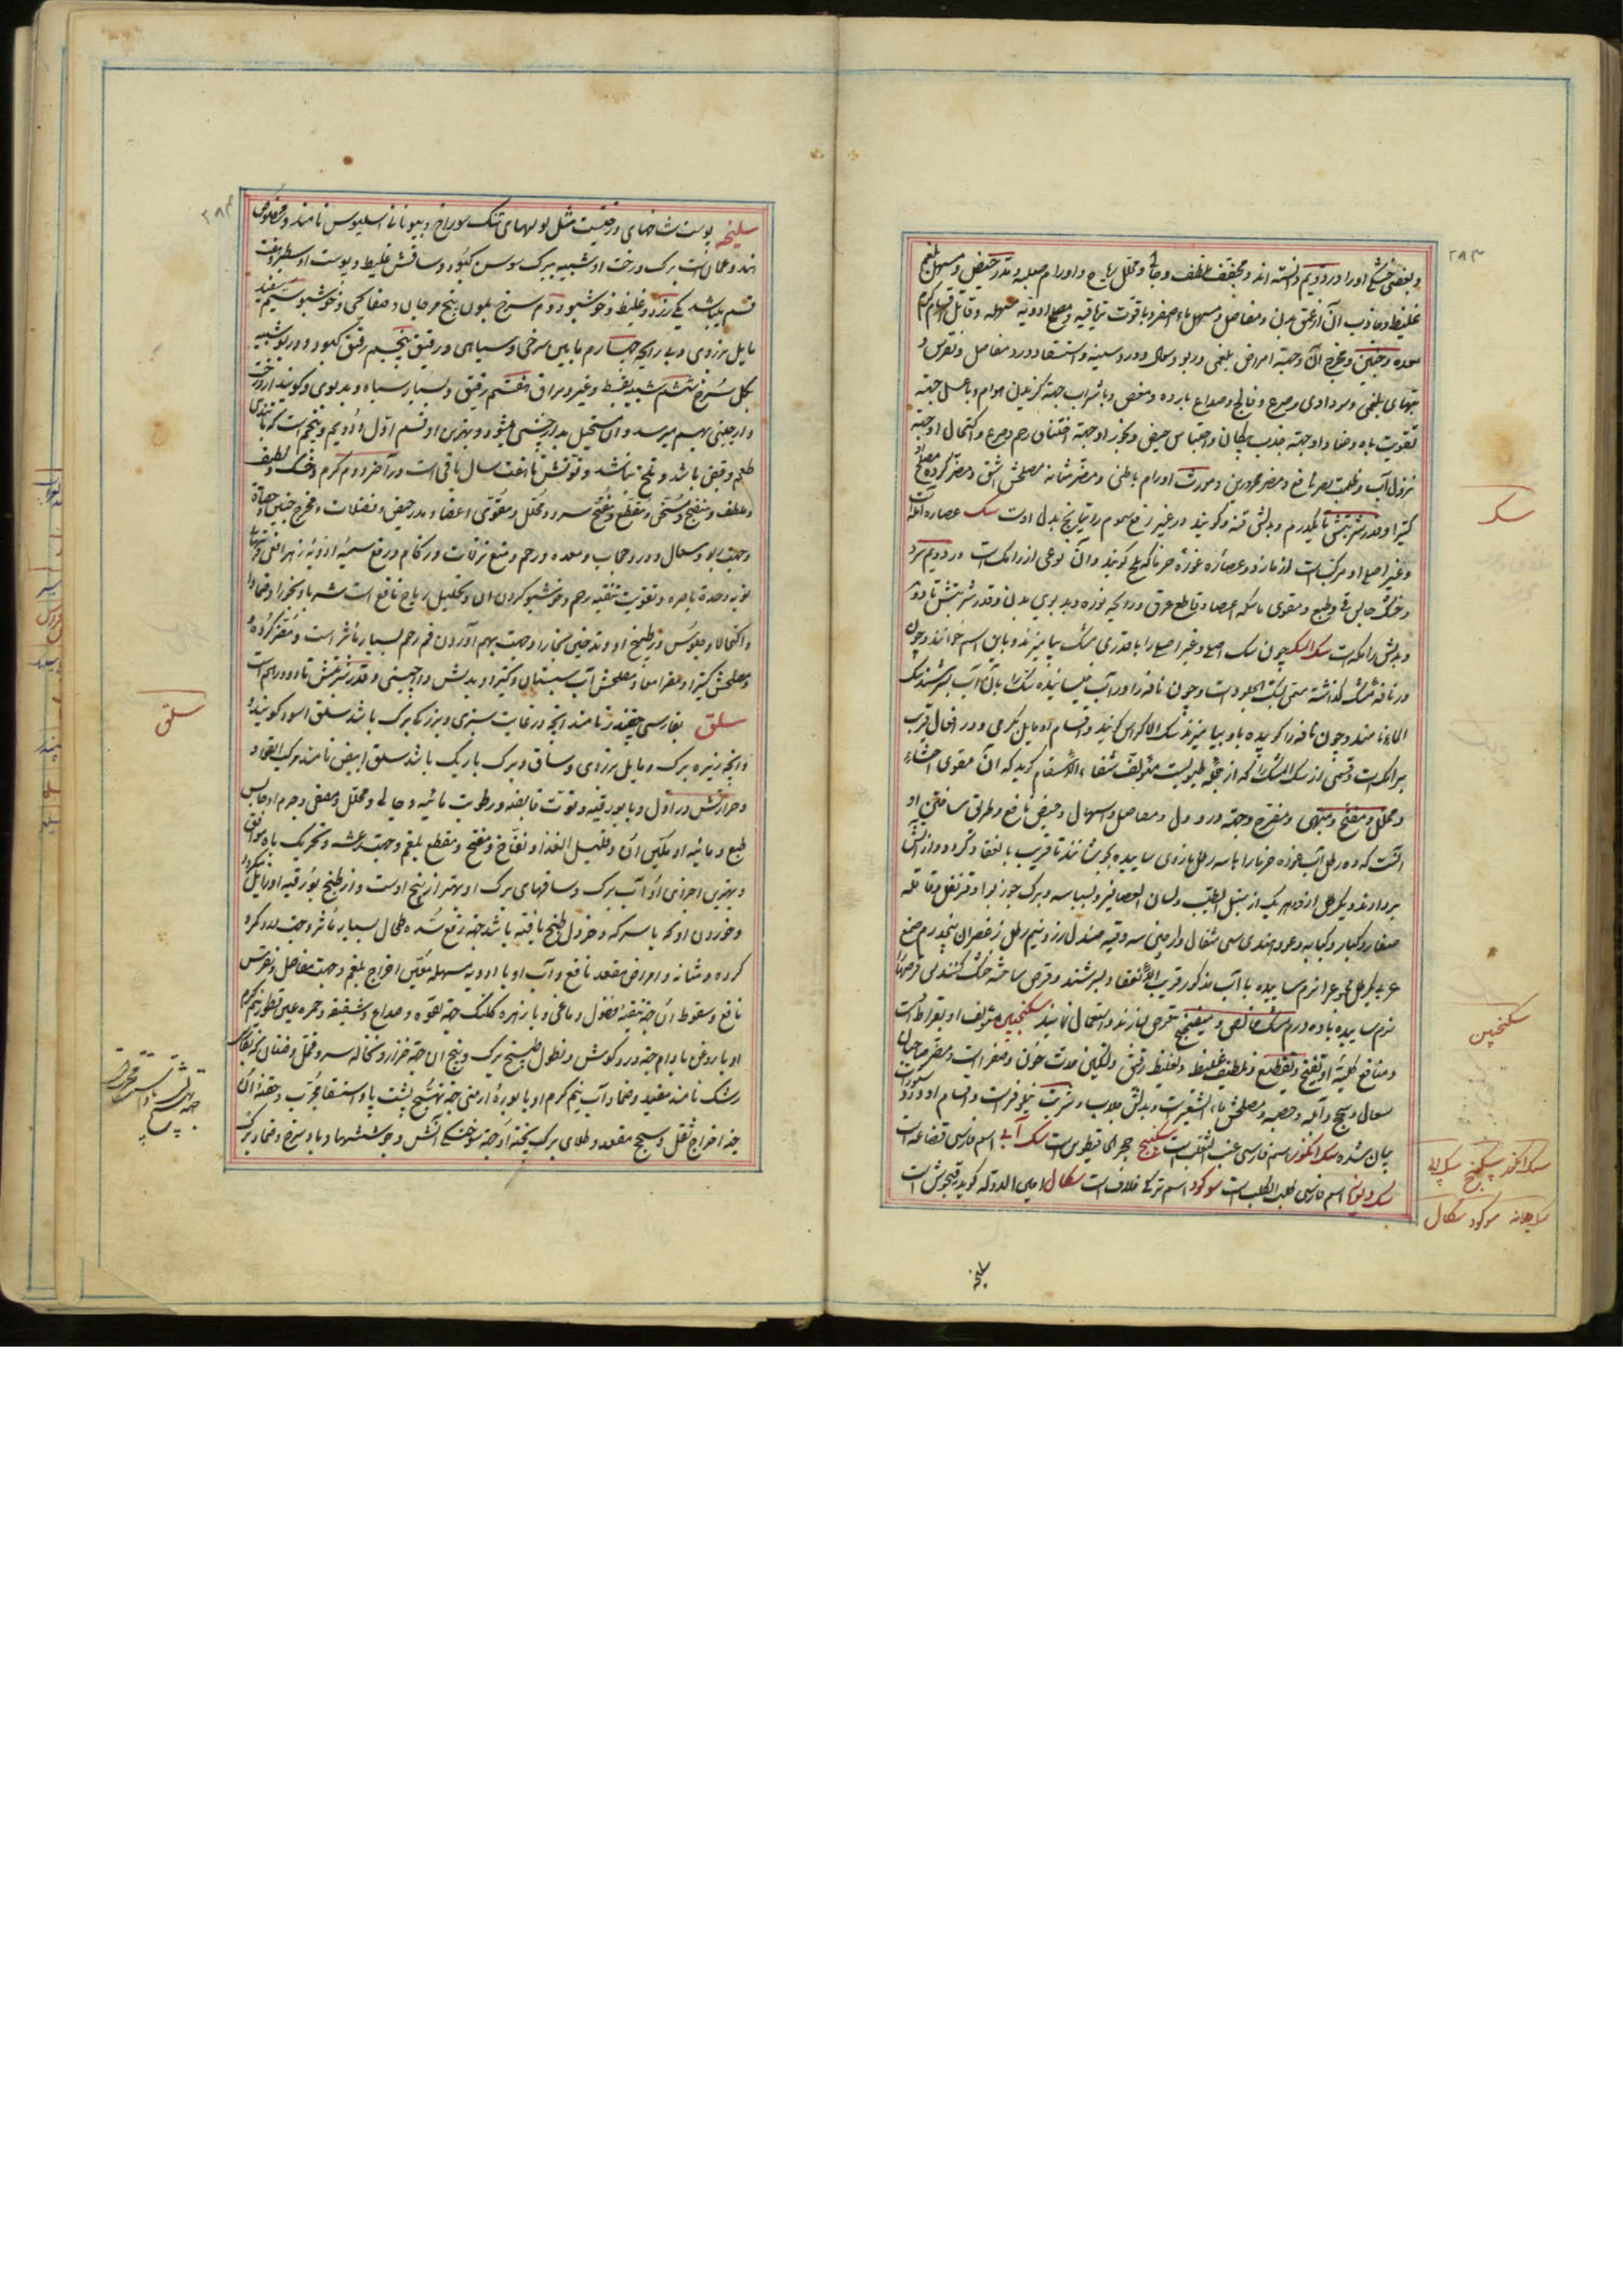 ۲۸۳
و بعضی خشکی او را در دویم دانسته اند و مجفف و ملطف و جالی و محلل ریاح و اورام صلبه و مدر حیض و مسهل بلغم
غلیظ و جاذب آن از عمق بدن و مفاصل و مسهل ماء اصفر و با قوت تریاقیه و مصلح ادویه مسهله و قاتل اقسام کرم
معده و جنین و مخرج آن و جهة امراض بلغمی و ربو و سعال و درد سینه و استسقا و درد مفاصل و نقرس و
تبهای بلغمی و سوداوی و صرع و فالج و صداع بارده و مغص و با شراب جهة گزیدن هوام و با عسل جهة
تقویت باه و ضماد او جهة جذب پیکان و احتباس حیض و بخور او جهة اختناق رحم و صرع و اکتحال او جهة
نزول آب و ظلمت بصر نافع و مضر محرورین و مورث اورام باطنی و مضر مثانه مصلحش اشق و مضر گرده مصلح او
کتیرا و قدر شربتش تا یکدرم و بدلش قنه و گویند در غیر رفع سموم راتیانج بدل اوست سک عصاره آمله است
و غیر اصلی او مرکب است از مازو و عصاره غوره خرما که بلح گویند و آن نوعی از رامک است در دویم سرد
و خشک و حابس قی و طبع و مقوی ماسکه اعصا و قاطع عرق و رایحه نوره و بدبوی بدن و قدر شربتش تا دو درم
و بدلش رامک است سک المسک چون سک اصلی و غیر اصلی را با قدری مشک بیامیزند و باین اسم خوانند و چون
در نافه مشک گذاشته سمی بسک الجلود است و چون نافه را در آب خیسانیده سک را بآن آب بسرشند سک
الماء نامند و چون نافه را کوبیده با او بیامیزند سک الاکراس گویند و اقسام او مایل بگرمی و در افعال قریب
برامک است و قسمی از سک المسک را که از جمله طیوبست مؤلف شفاء الاسقام گوید که آن مقوی احشاء
و محلل و مفتح و مشهی و مفرح و جهة درد دل و مفاصل و اسهال و حیض نافع و طریق ساختن او
آنست که ده رطل آب غوره خرما را با سه رطل مازوی ساییده بجوشانند تا قریب بانعقاد گردد و از آتش
بردارند و یکرطل از هر یک از سنبل الطیب و لسان العصافیر و بسباسه و برک جوز بوا و قرنفل و قاقله
صغار و کبار و کبابه و عود هندی سی مثقال و دارچینی سه وقیه صندل زرد نیم رطل زعفران پنجدرم صمغ
عربی یکرطل مجموع را نرم ساییده با آب مذکور قریب الانعقاد بسرشند و قرص ساخته خشک کنند پس قرصها را
نرم ساییده با ده درم مشک خالص و میفختج قرص سازند و استعمال نمایند سکنجبین مؤلف او بقراط است
و منافع کلیه او تفتیح و تقطیع و تلطیف غلیظ و تغلیظ رقیق و تسکین حدت خون و صفراست و مضر صاحبان
سعال و سحج و آبله و حصبه و مصلحش ماء الشعیر است و بدلش جلاب و شربت نیلوفر است و اقسام او در دستورات
بیان شده سک انگور اسم فارسی عنب الثعلب است سکبینج حجر القیطوس است سک آبی اسم فارسی قضاعه است
سک دیوانه اسم فارسی کلب الکلب است سوکود اسم ترکی خلاف است سکال امین الدوله گوید رقیجوش است
سک
سکنجبین
سک انگور سکبینج سک آبی
سک دیوانه سوکود سکال
سلیخه
۲۸۴
سلیخه پوست شاخهای درختیست مثل لولهای تنک سوراخ و بیونانی اسلیوس نامند و مخصوص
هند و عمان است برک درخت او شبیه ببرک سوسن کبود و ساقش غلیظ و پوست او سطبر و هفت
قسم میباشد یکی زرد و غلیظ و خوشبو دوم سرخ بلون بیخ مرجان و صفایحی و خوشبو سیم سفید
مایل بزردی و بی رایحه چهارم مابین سرخی و سیاهی و رقیق پنجم رقیق کبود و در بو شبیه
بکل سرخ ششم شبیه بقسط و غیر براق هفتم رقیق و بسیار سیاه و بدبوی و گویند از درخت
دارچینی بهم میرسد و آن مستحیل بدارچینی میشود و بهترین او قسم اول و دویم و پنجم است که با تندی
طعم و قبض باشد و تلخ نباشد و قوتش تا هفت سال باقی است در آخر دوم گرم و خشک و لطیف
و ملطف و منضج و مسخن و مقطع و مفتح سدد و محلل و مقوی اعضا و مدر حیض و فضلات و مخرج جنین و حصاة
و جهت ربو و سعال و درد حجاب و معده و رحم و منع نزلات و زکام و رفع سمیه ادویه و زهر افعی و تبهای
نوبه و حدة باصره و تقویت تنقیه رحم و خوشبو کردن آن و تحلیل ریاح نافع است شربا و بخورا و ضمادا
و اکتحالا و جلوس در طبیخ او و تدخین بخار او جهت بهم آوردن فم رحم بسیار مؤثر است و مضر گرده
و مصلحش کتیرا و مضر امعا و مصلحش آب سپستان و کتیرا و بدلش دارچینی و قدر شربتش تا دو درهم است
سلق بفارسی چغندر نامند آنچه در غایت سبزی و بزرک برک باشد سلق اسود گویند
و آنچه ریزه برک و مایل بزردی و ساق و برک باریک باشد سلق ابیض نامند مرکب القوی
و حرارتش در اول و با بورقیه و قوت قابضه و رطوبت مائیه و جالی و محلل و ملین و جرم او حابس
طبع و مائیه او ملین آن و قلیل الغذا و نفاخ و مفتح و مقطع بلغم و جهت رعشه و تحریک باه موافق
و بهترین اجزای او آب برک و ساقهای برک او بهتر از بیخ اوست و از طبخ بورقیه او زایل میگردد
و خوردن او که با سرکه و خردل طبخ یافته باشد جهة رفع سده طحال بسیار مؤثر و جهت درد کمر و
گرده و مثانه و امراض مقعد نافع و آب او با ادویه مسهله معین اخراج بلغم و جهت مفاصل و نقرس
نافع و سعوط آن جهة تنقیه فضول دماغی و با زهره کلنک جهة لقوه و صداع و شقیقه و حمره عین و قطور نیم گرم
او با روغن بادام جهة درد گوش و نطول طبیخ برک و بیخ آن جهة حزاز و نخاله سر و قمل و صئبان که بفارسی
رشک نامند مفید و ضماد آب نیم گرم او با بوره ارمنی جهة تهبج پشت پا و استسقا مجرب و حقنه آن
جهة اخراج ثقل و سحج مقعد و طلای برک پخته او جهة سوختگی آتش و جوششها و باد سرخ و ضماد برک
سلق